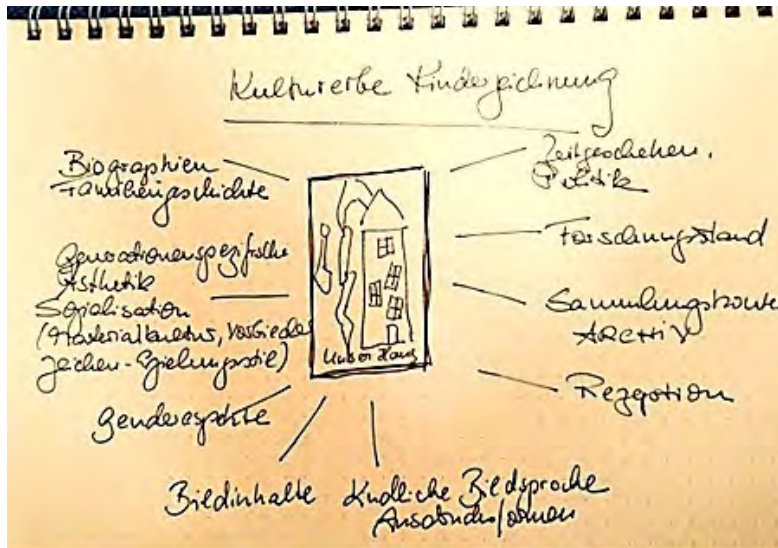 Kulturerbe Kinderzeichnung
Biographien
Familiengeschichte
Generationenspezifische
Ästhetik
Sozialisation
(Materialkultur, Vorbilder
Zeichen-Erziehungsstil)
Genderaspekte
Bildinhalte
Kindliche Bildsprache
Ausdrucksformen
Unser Haus
Zeitgeschehen,
Politik
Forschungsstand
ARCHIV
Rezeption